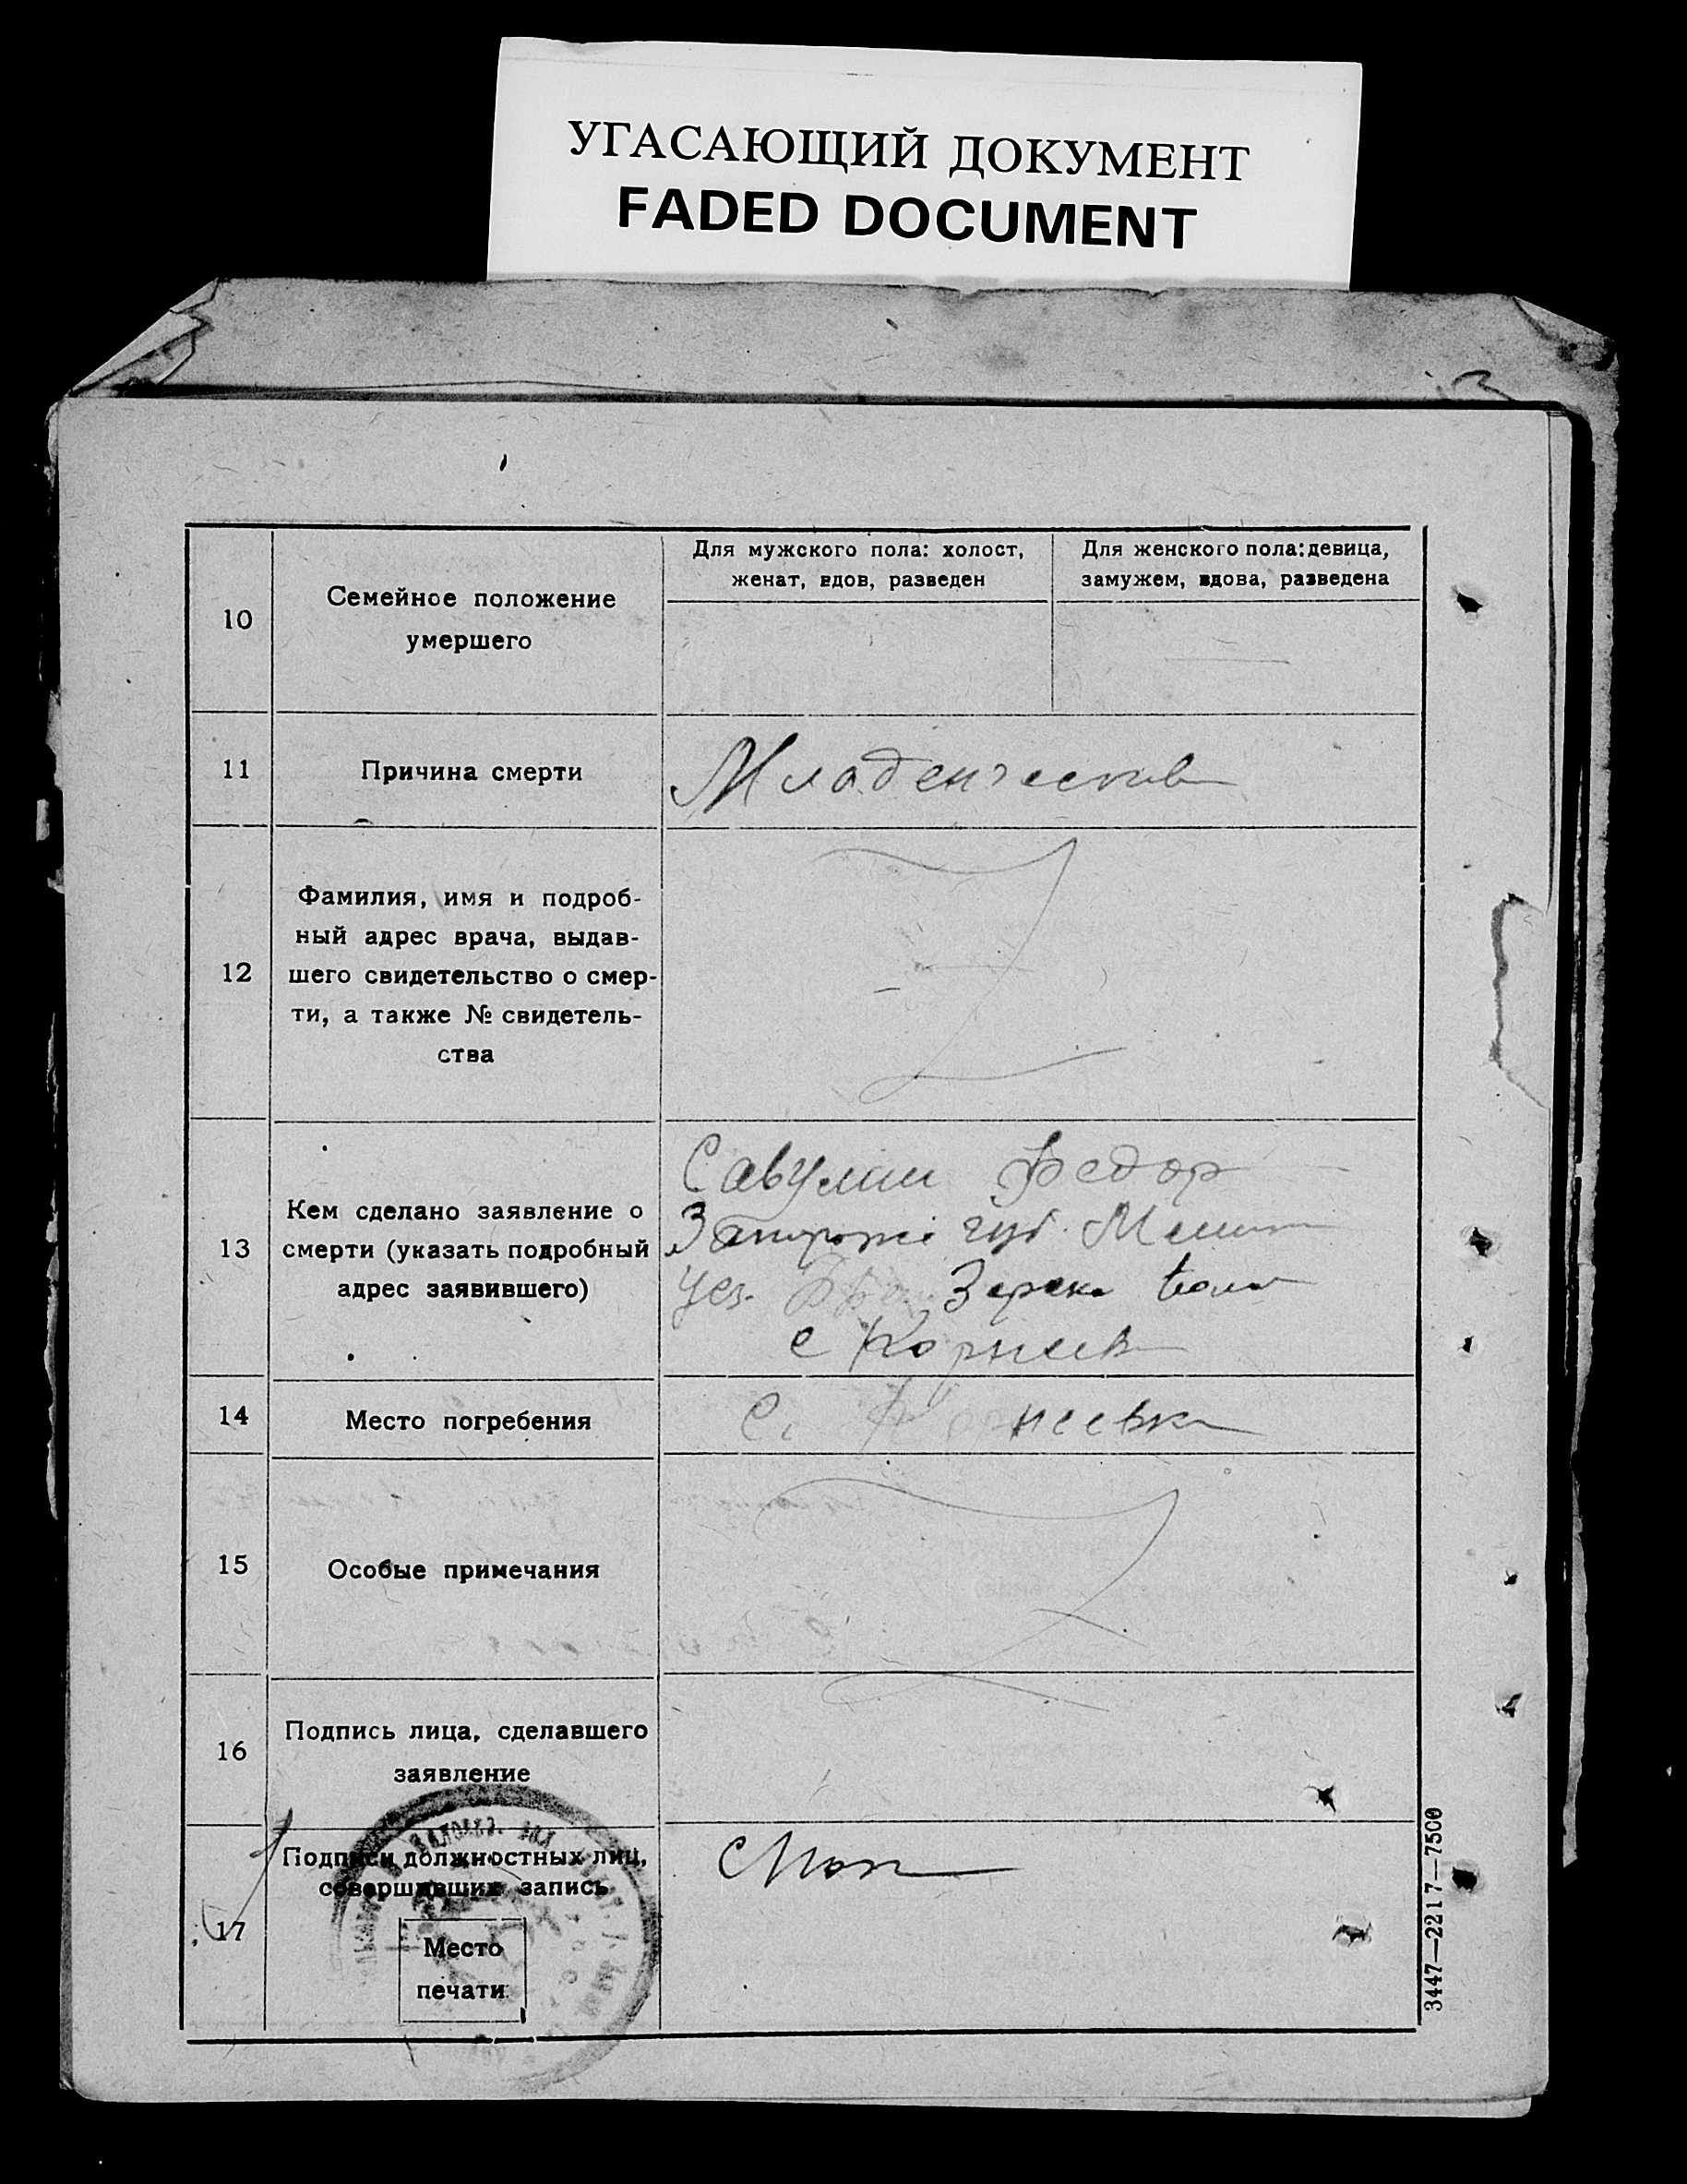 УГАСАЮЩИЙ ДОКУМЕНТ
FADED DOCUMENT
10
Семейное положение
умершего
Для мужского пола: холост,
женат, вдов, разведен
Для женского пола: девица,
замужем, вдова, разведена
11
Причина смерти
Младенческ
12
Фамилия, имя и подроб-
ный адрес врача, выдав-
шего свидетельство о смер-
ти, а также № свидетель-
ства
13
Кем сделано заявление о
смерти (указать подробный
адрес заявившего)
Савулии Федор
губ. Мелит
уез.
с Корнеев
14
Место погребения
С. Корнеевка
15
Особые примечания
16
Подпись лица, сделавшего
заявление
17
Подписи должностных лиц,
совершивших запись
Место
печати
3447—2217—7500